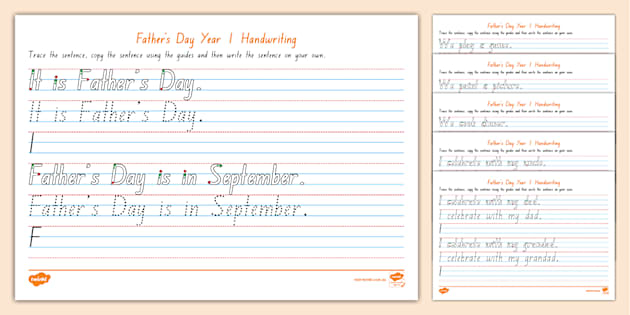 Father's Day Year 1 Handwriting
Trace the sentence, copy the sentence using the guides and then write the sentence on your own.
It is Father's Day.
It is Father's Day.
I
Father's Day is in September.
Father's Day is in September.
F
twinkl
Father's Day Year 1 Handwriting
Trace the sentence, copy the sentence using the guides and then write the sentence on your own.
We play a game.
Father's Day Year 1 Handwriting
Trace the sentence, copy the sentence using the guides and then write the sentence on your own.
We paint a picture.
Father's Day Year 1 Handwriting
Trace the sentence, copy the sentence using the guides and then write the sentence on your own.
We cook dinner.
Father's Day Year 1 Handwriting
Trace the sentence, copy the sentence using the guides and then write the sentence on your own.
I celebrate with my
Father's Day Year 1 Handwriting
Trace the sentence, copy the sentence using the guides and then write the sentence on your own.
I celebrate with my dad.
I celebrate with my dad.
I
I celebrate with my grandad.
I celebrate with my grandad.
I